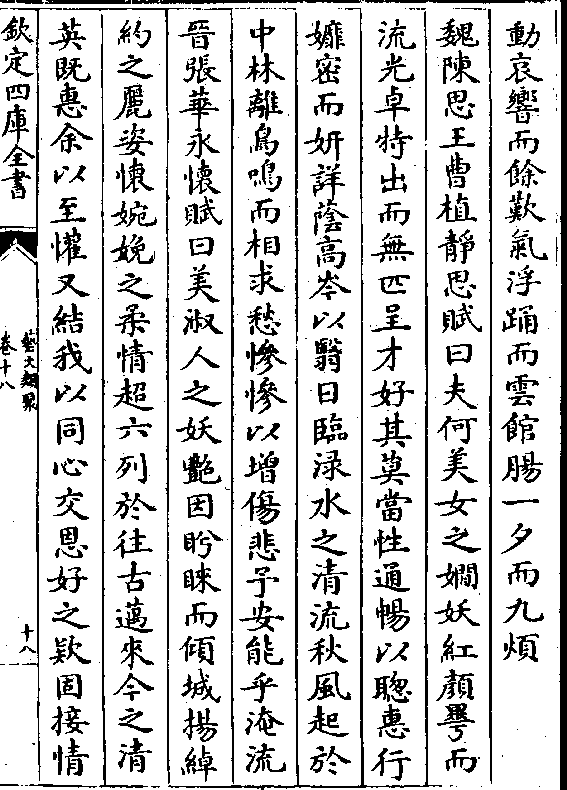 動哀響而餘歎氣浮踊而雲館腸一夕而九煩
魏陳思王曹植靜思賦曰夫何美女之嫺妖紅顔曄而
流光卓特出而無匹呈才好其莫當性通暢以聰惠行
孊密而妍詳蔭高岑以翳日臨渌水之清流秋風起於
中林離鳥鳴而相求愁慘慘以增傷悲予安能乎淹流
晉張華永懷賦曰美淑人之妖艶因盻睞而傾城揚綽
約之麗姿懐婉娩之柔情超六列於往古邁來今之清
英既惠余以至懽又結我以同心交恩好之欵固接情
欽定四庫全書
藝文類聚
卷十八
十八